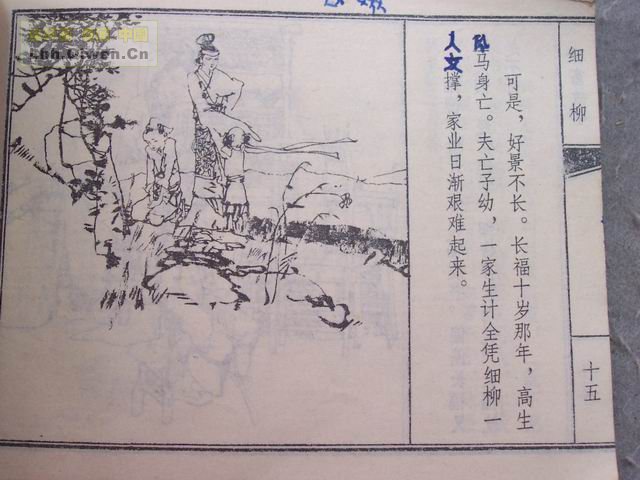 细柳
十五
可是，好景不长。长福十岁那年，高生
马身亡。夫亡子幼，一家生计全凭细柳一
人支撑，家业日渐艰难起来。
lhh.Qiwen.Cn